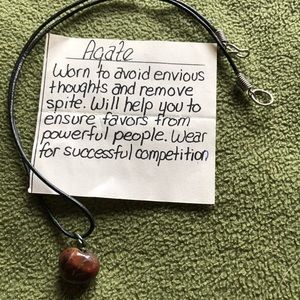 Agate
Worn to avoid envious
thoughts and remove
spite. Will help you to
ensure favors from
powerful people. Wear
for successful competition